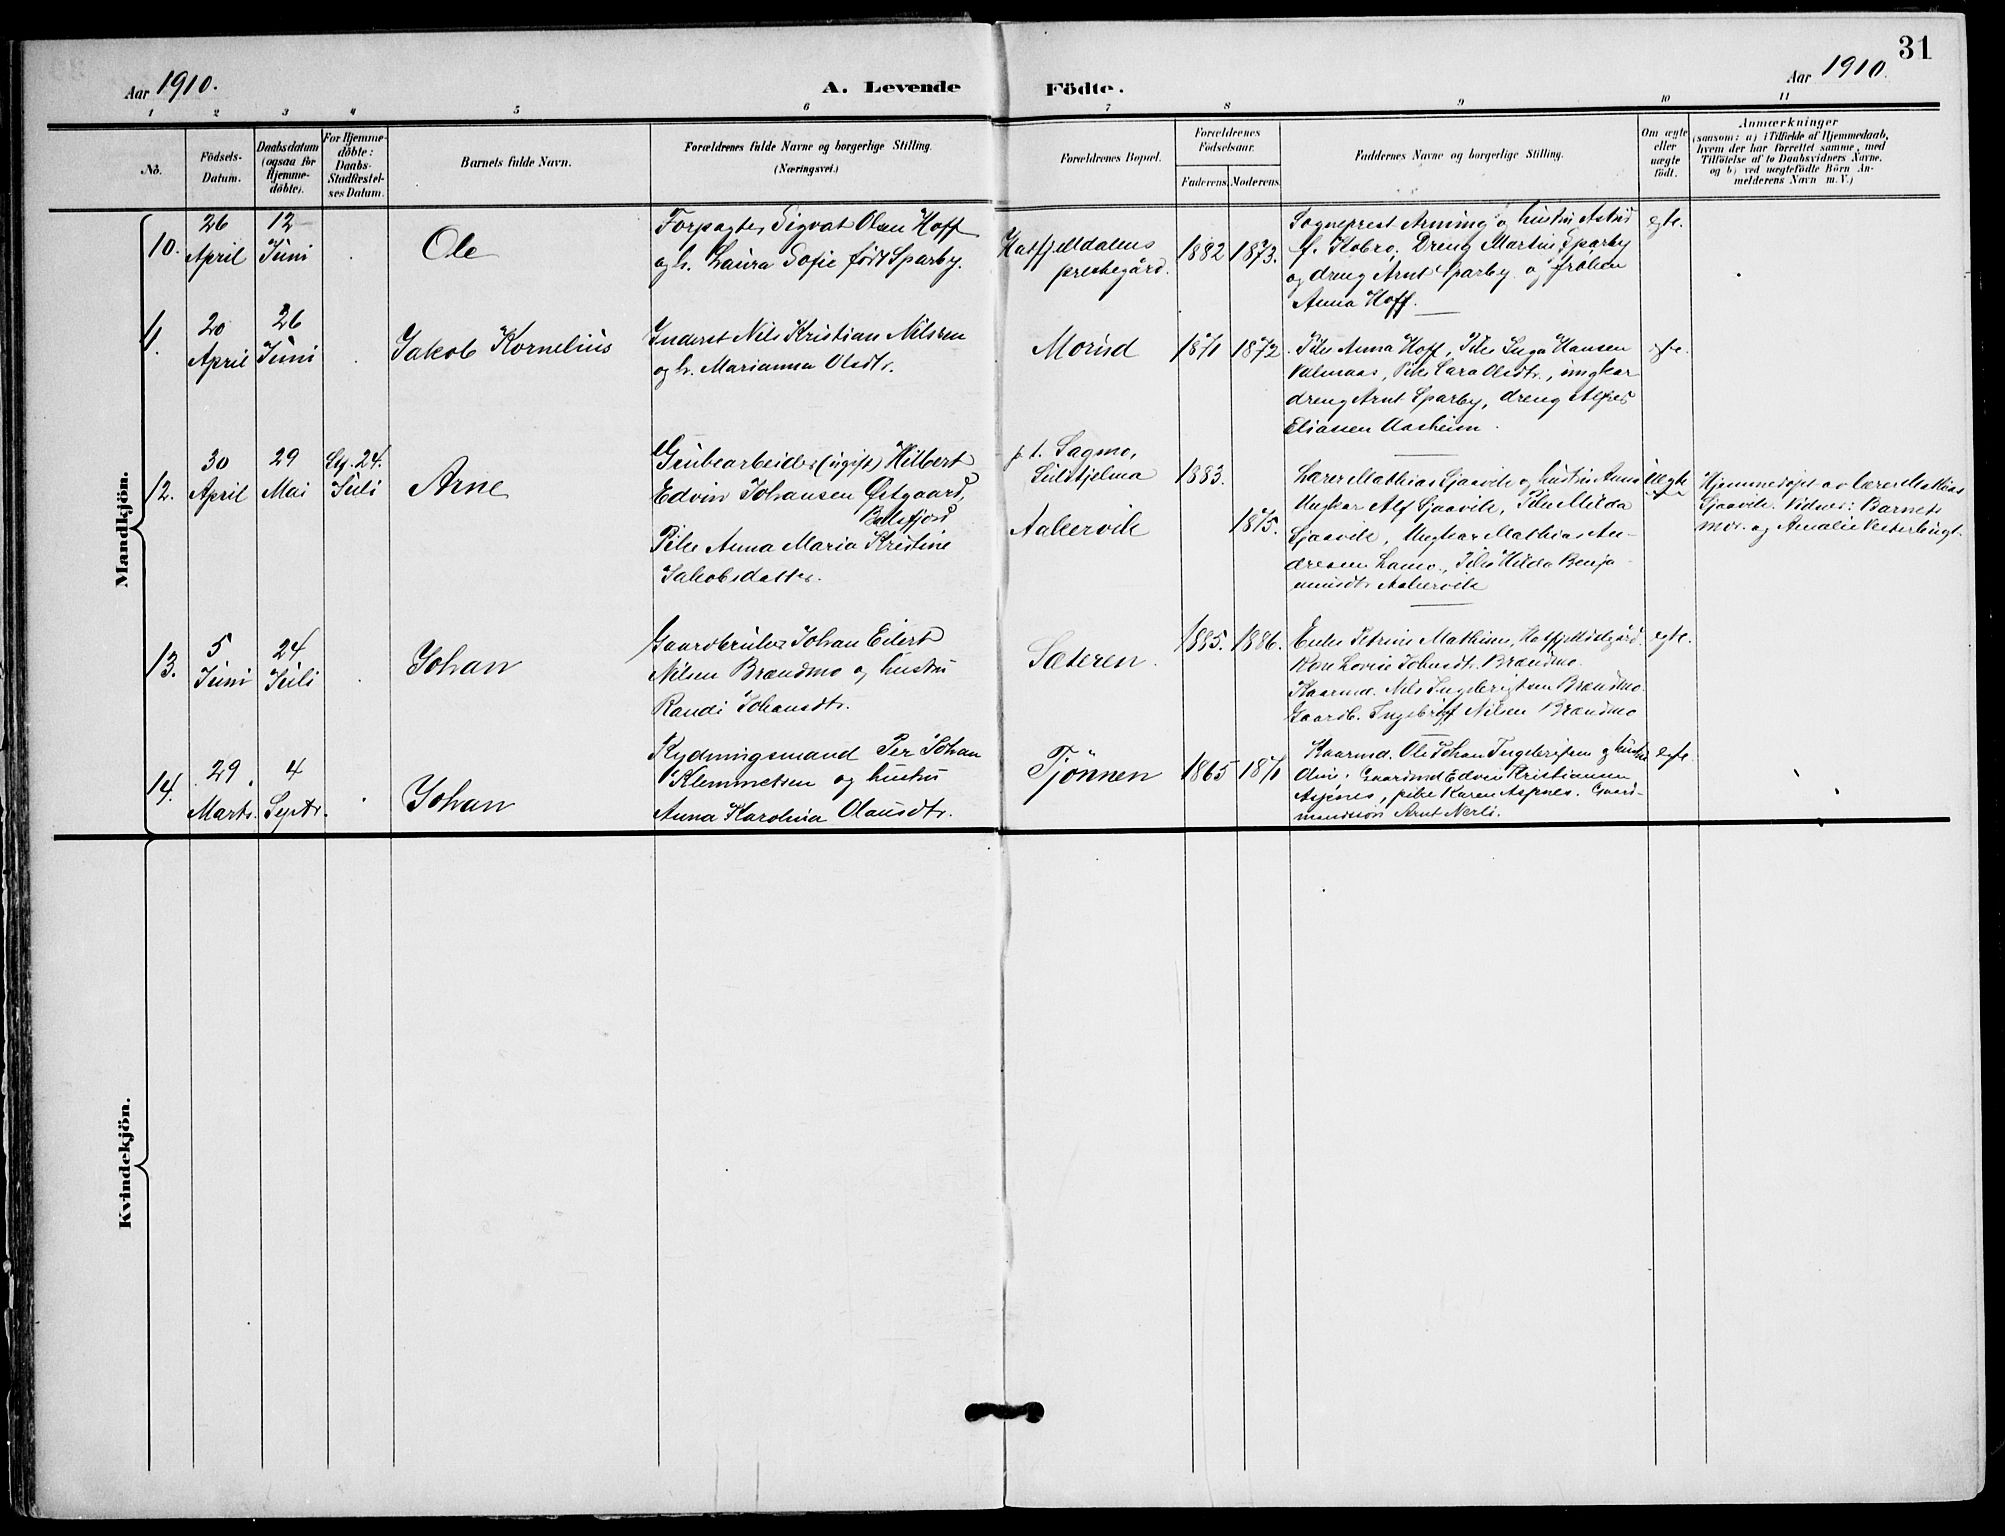 31
Aar 1910.
A. Levende
Födte.
Aar 1910.
1 2 3 4 5 6 7 8 9 10 11
No.
Födsels-
Datum.
Daabsdatum
(ogsaa for
Hjemme-
döbte).
For Hjemme-
döbte:
Daabs-
Stadfæstel-
ses Datum.
Barnets fulde Navn.
Forældrenes fulde Navne og borgerlige Stilling.
(Næringsvei.)
Forældrenes Bopæl.
Forældrenes
Födselsaar.
Faderens. Moderens.
Faddernes Navne og borgerlige Stilling.
Om ægte
eller
uægte
født.
Anmærkninger
(saasom: a) i Tilfælde af Hjemmedaab,
hvem der har forrettet samme, med
Tilföielse af to Daabsvidners Navne,
og b) ved uægtefödte Börn An-
melderens Navn m. V.)
Mandkjön.
10.
26
April
12
Juni
Ole
Forpagter Sigvat Olsen Hoff
og h. Laura Sofie født Sparby.
Hatfjelldalens
prestegård.
1882
1873.
Sogneprest Arning og hustru Astrid
f. Kobro, Dreng Martin Sparby
og dreng Arnt Sparby og frøken
Anna Hoff.
egte.
11.
20
April
26
Juni
Jakob Kornelius
Inderst Nils Kristian Nilsen
og h. Marianna Olsdtr.
Morud
1871
1872
Pike Anna Hoff, Pike Inga Hansen
Pike Lara Olsdtr., ungkar
dreng Arnt Sparby, dreng Alfred
Eliassen Aasheim.
egte.
12.
30
April
29
Mai
Stf. 24.
Juli
Arne
Grubearbeider (ugift) Hilbert
Edvin Johansen Østgaard,
Balsfjord
Pike Anna Maria Kristine
Jakobsdatter.
p. t. Sagmo,
Sulitjelma
Aakervik
1883.
1875.
Lærer Mathias Sjaavik og hustru Anna
Ungkar Alf Sjaavik, Pike Milda
Sjaavik, Ungkar Mathias An-
dresen Lamo, Pike Hilda Benja-
minsdtr. Aakervik
Uegte
Hjemmedøpt av lærer Mathias
Sjaavik. Vidner: Barnets
mor og Amalie Vesterbugt.
13.
5
Juni
24
Juli
Johan
Gaardbruker Johan Eilert
Nilsen Brændmo og hustru
Randi Johansdtr.
Sæteren.
1885.
1886.
Enke Katrine Mathisen, Hatfjelldalgård.
Kone Lovise Johnsdtr. Brændmo.
Kaarmd. Nils Ingebrigtsen Brændmo.
Gaardb. Ingebrigt Nilsen Brændmo
egte.
14.
29
Marts.
4
Septr.
Johan
Rydningsmand Per Johan
Klemmetsen og hustru
Anna Karolina Olausdtr.
Tjønnen
1865
1871
Kaarmd. Ole Johan Ingebrigtsen og hustru
Gaardmd Edvin Kristiansen
Aspnes, pike Karen Aspnes. Gaard-
mandssøn Arnt Nerli.
egte.
Kvindekjön.